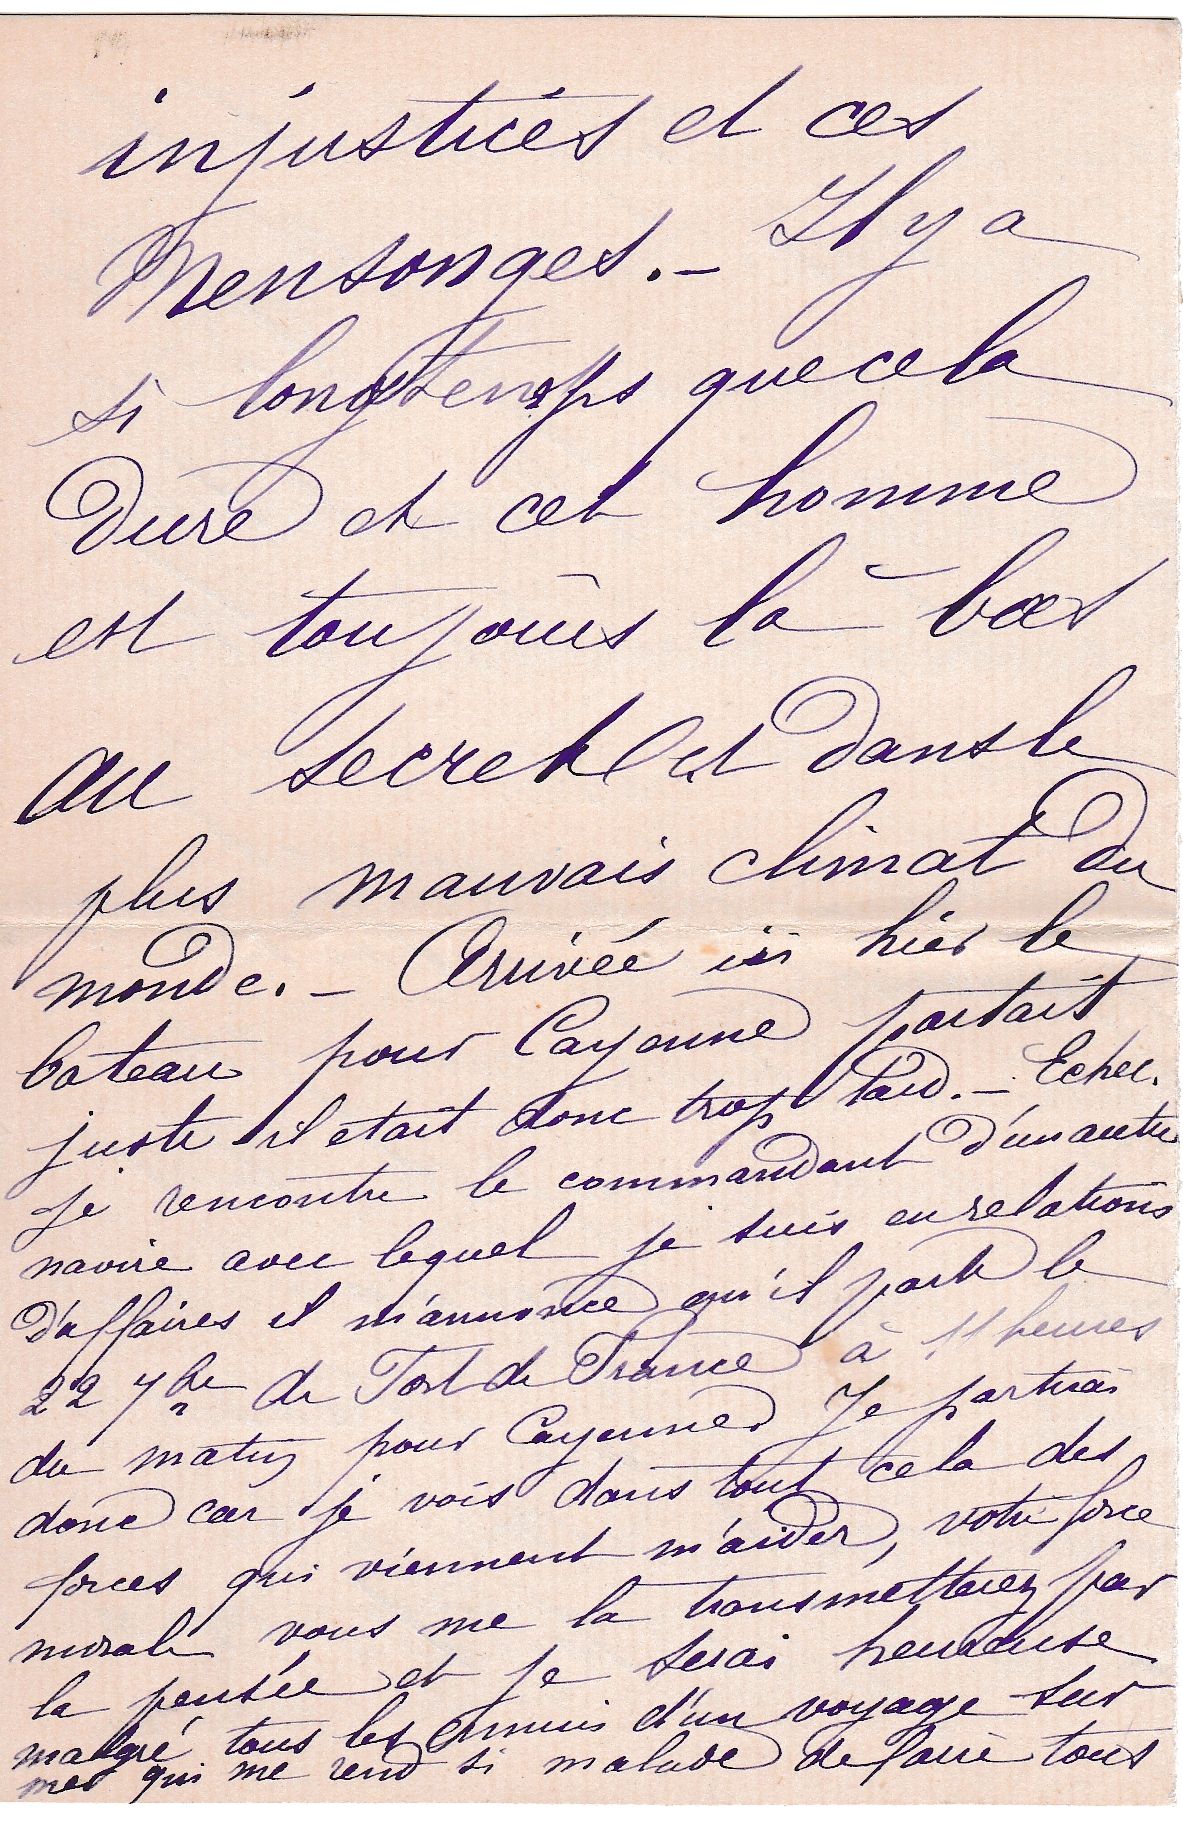 injusticés et ces
Mensonges. - Il y a
si longtemps que cela
dure et cet homme
est toujours là bas
au secret et dans le
plus mauvais climat du
monde. - Arrivée ici hier le
bateau pour Cayenne partait
juste il etait donc trop tard. - Echec.
je rencontre le commandant d'un autre
navire avec lequel je suis en relations
d'affaires il m'annonce qu'il part le
22 7bre de Fort de France à 11 heures
du matin pour Cayenne Je partirai
donc car je vois dans tout cela des
forces qui viennent m'aider, votre force
morale vous me la transmetterez par
la pensée et je serai heureuse
malgré tous les ennuis d'un voyage sur
mer qui me rend si malade de faire tous